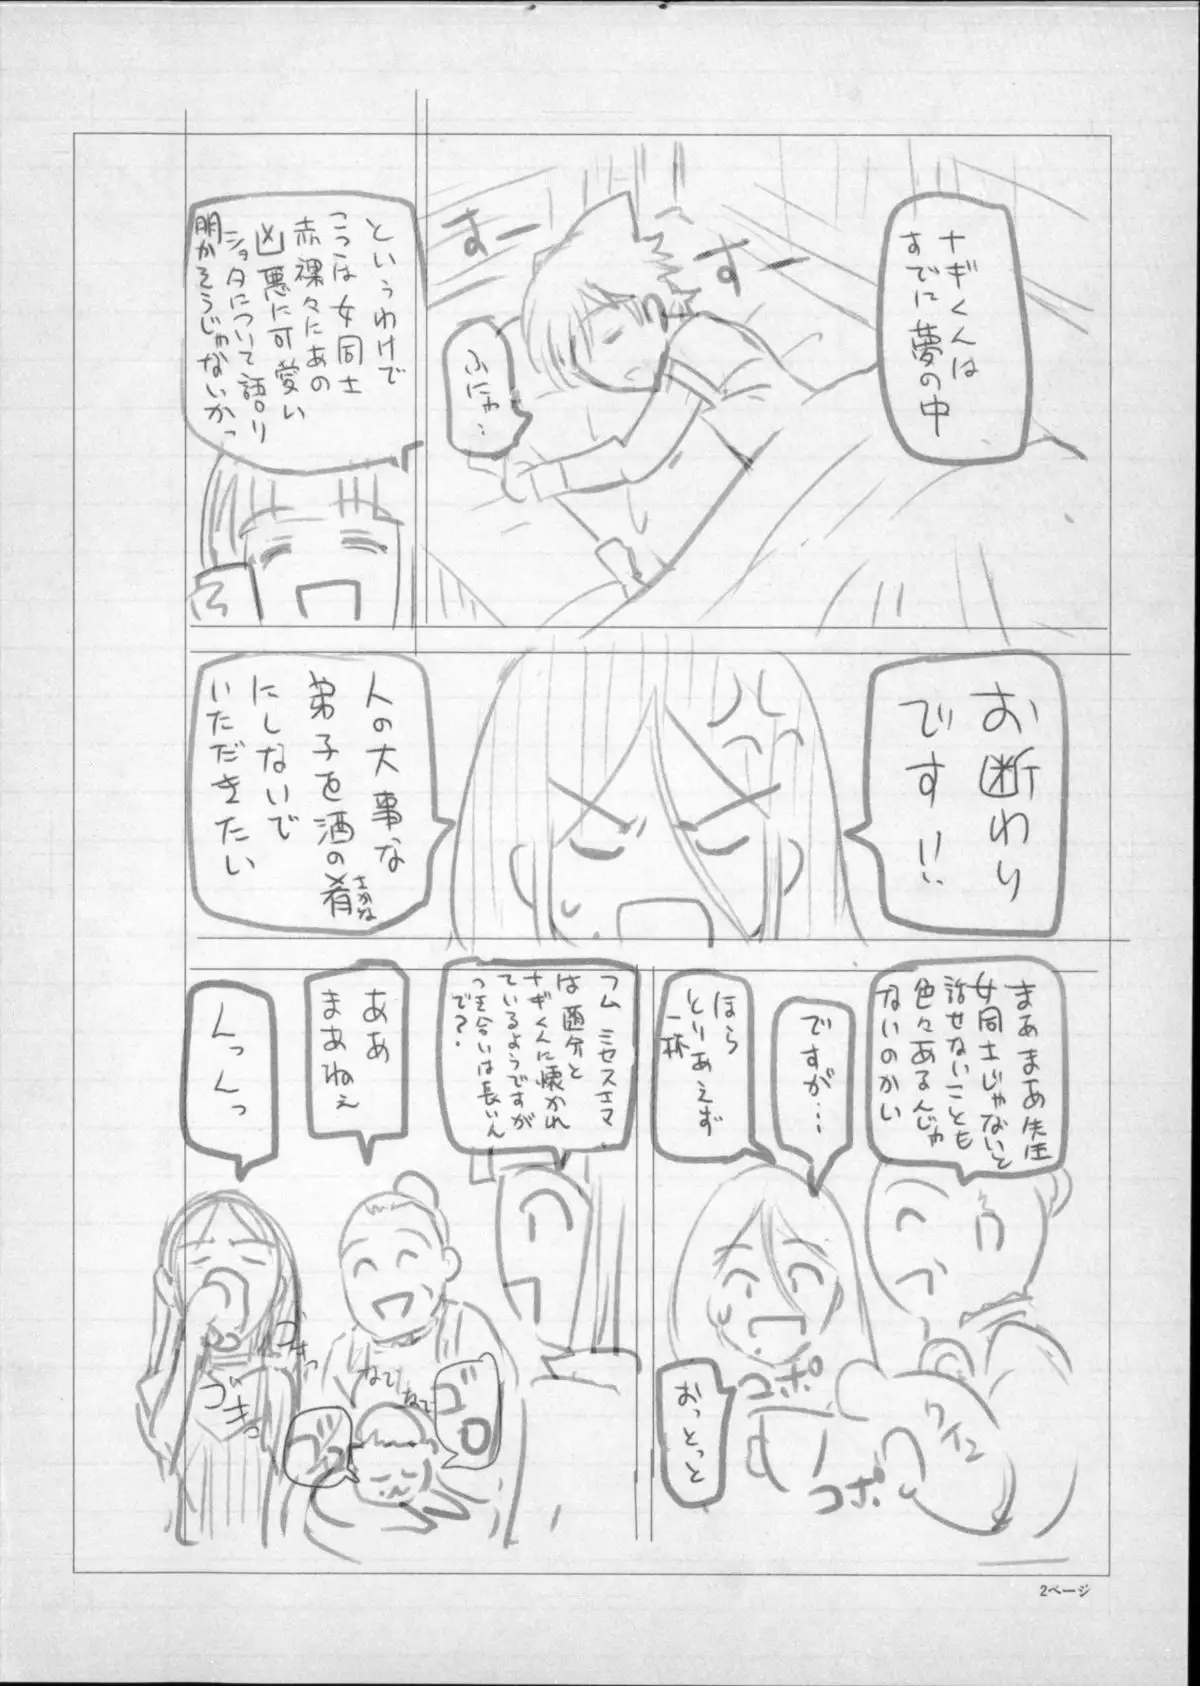 ナギくんは
すでに夢の中
すー
すー
ふにゃ…
というわけで
こっつは女同士
赤裸々にあの
凶悪に可愛い
ショタについて語り
明かそうじゃないかっ
お断わり
です!!
人の大事な
弟子を酒の肴
さかな
にしないで
いただきたい
まあまあ先生
女同士じゃないと
話せないことも
色々あるんじゃ
ないのかい
ですが…
ほら
とりあえず
一杯
おっとっと
コポ
コポ
ワイン
フム ミセスエマ
は随分と
ナギくんに懐かれ
ているようですが
つき合いは長いん
で?
ああ
まあねぇ
んっんっ
ゴロ
ゴロ
なで
なで
づきっ
づきっ
2ページ